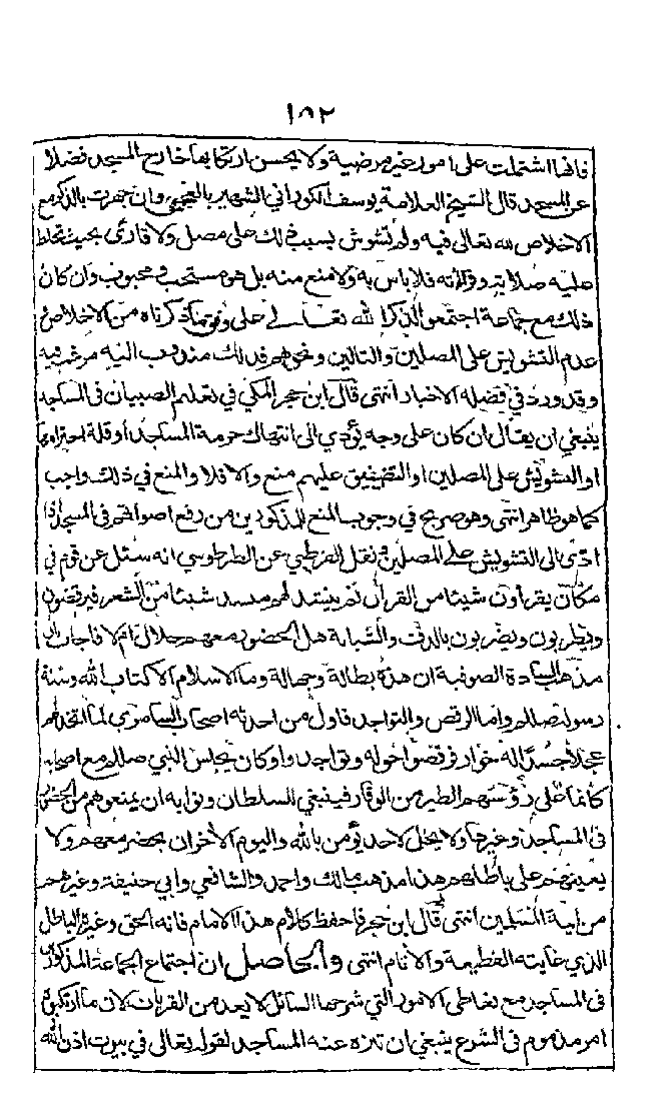 ١٥٢
فانها اشتملت على امور غير مرضية ولا يحسن ارتكابها خارج المسجد فضلا
عن المسجد قال الشيخ العلامة يوسف الكوراني الشهير بالعجمي وان جهرت بالذكر مع
الاخلاص لله تعالى فيه ولم تشوش بسبب ذلك على مصل ولا قارئ بحيث تخلط
عليه صلاته وقراته فلا باس به ولا منع منه بل هو مستحب محبوب وان كان
ذلك مع جماعة اجتمعوا لذكر الله تعالى على وفق ما ذكرناه من الاخلاص و
عدم التشويش على المصلين والتالين ونحوهم فذلك مندوب اليه مرغب فيه
وقد ورد في فضله الاخبار انتهى قال ابن حجر المكي في تعليم الصبيان في المساجد
ينبغي ان يقال ان كان على وجه يؤدي الى انتهاك حرمة المساجد او قلة احترامها
او التشويش على المصلين او التضييق عليهم منع والا فلا والمنع في ذلك واجب
كما هو ظاهر انتهى وهو صريح في وجوب المنع للمذكورين من رفع اصواتهم في المسجد اذا
ادى الى التشويش على المصلين ونقل القرطبي عن الطرطوسي انه سئل عن قوم في
مكان يقرأون شيئا من القرآن ثم ينشد لهم منشد شيئا من الشعر فيرقصون
ويطربون ويضربون بالدف والشبابة هل الحضور معهم حلال ام لا فاجاب ان
مذهب السادة الصوفية ان هذه بطالة وجهالة وما الاسلام الا كتاب الله وسنة
رسوله صللم واما الرقص والتواجد فاول من احدثه اصحاب السامري لما اتخذ لهم
عجلا جسدا له خوار فرقصوا حوله وتواجدوا وكان مجلس النبي صللم مع اصحابه
كانما على رؤسهم الطير من الوقار فينبغي للسلطان ونوابه ان يمنعوهم من الحضور
في المساجد وغيرها ولا يحل لاحد يؤمن بالله واليوم الآخر ان يحضر معهم ولا
يعينهم على باطلهم هذا مذهب مالك واحمد والشافعي وابي حنيفة وغيرهم
من ايمة المسلمين انتهى قال ابن حجر فاحفظ كلام هذا الامام فانه الحق وغيره الباطل
الذي غايته القطيعة والآثام انتهى والحاصل ان اجتماع الجماعة المذكورين
في المساجد مع تعاطي الامور التي شرحها السائل لا يعد من القربات لان ما ارتكبوه
امر مذموم في الشرع ينبغي ان تنزه عنه المساجد لقوله تعالى في بيوت اذن الله